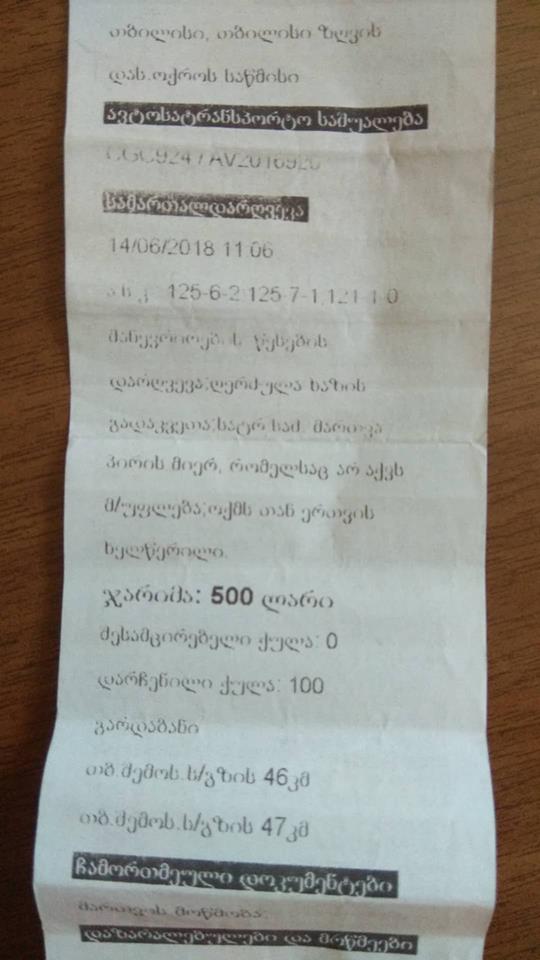 თბილისი, თბილისი ზღვის
დას.ოქროს საწმისი
ავტოსატრანსპორტო საშუალება
CGC924 / AV2016920
სამართალდარღვევა
14/06/2018 11:06
125-6-2;125-7-1;121-1-0
მანევრირების წესების
დარღვევა;ღერძულა ხაზის
გადაკვეთა;სატრ.საშ. მართვა
პირის მიერ, რომელსაც არ აქვს
მ/უფლება;ოქმს თან ერთვის
ხელწერილი.
ჯარიმა: 500 ლარი
შესამცირებელი ქულა: 0
დარჩენილი ქულა: 100
გარდაბანი
თბ.შემოს.ს/გზის 46კმ
თბ.შემოს.ს/გზის 47კმ
ჩამორთმეული დოკუმენტები
მართვის მოწმობა:
დაზარალებულები და მოწმეები